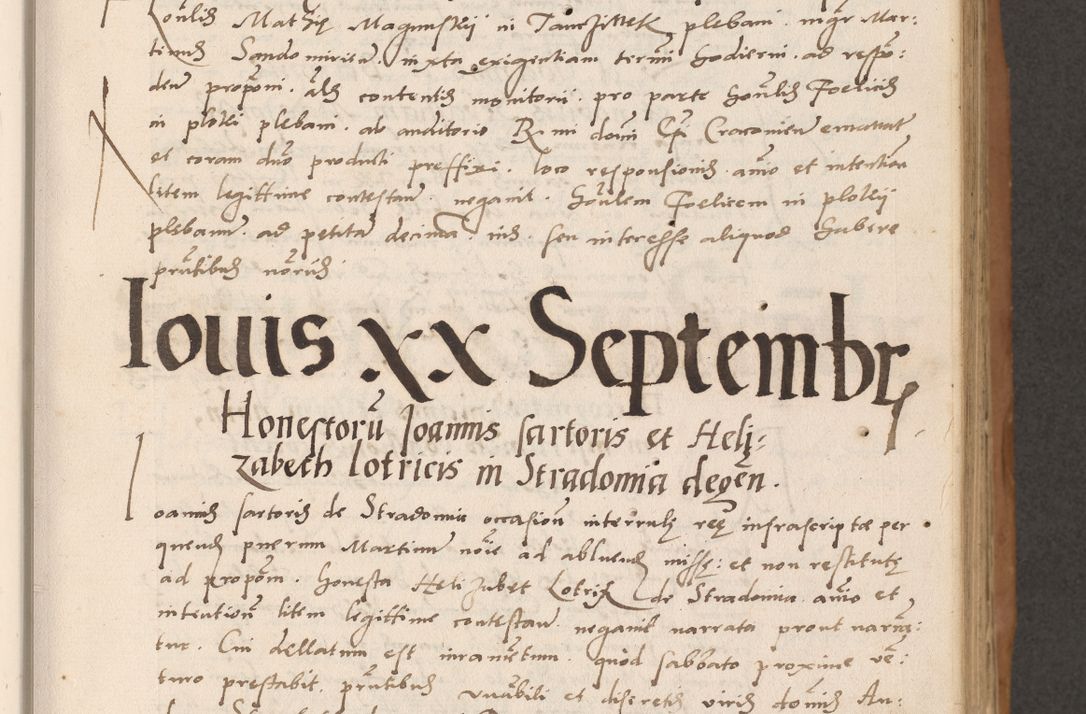 Mathię Magnuskii in plebani mgr Mar:
tinus Sandomirien iuxta exigentiam termi hodierni ad respo:
den proponi als contentis monitorii pro parte honlis Foelicis
in plokii plebani ab auditorio R mi domi Epi Cracouien emanat
et coram duo producti preffixi loco responsionis animo et intention
litem legittime contestan negauit honlem Foelicem in plokii
plebanum ad petita decima ius seu interesse aliquod habere
prntibus
Iouis xx Septembr
Honestorũ Joannis sartoris et Heli:
zabeth lotricis in Stradomia degen.
Ioannis sartoris de Stradomia occasion interrulę reę infrascriptæ per
quendam puerum Martinum noie ad abluend missę: et non restitutę
ad propom. honesta Helizabet Lotrix de Stradomia animo et
intention litem legittime contestan negauit narrata prout narra:
tur. Cui dellatum est iuramentum quod sabbato proxime ue:
turo prestabit prntibus uenbili et discretis viris domis An: